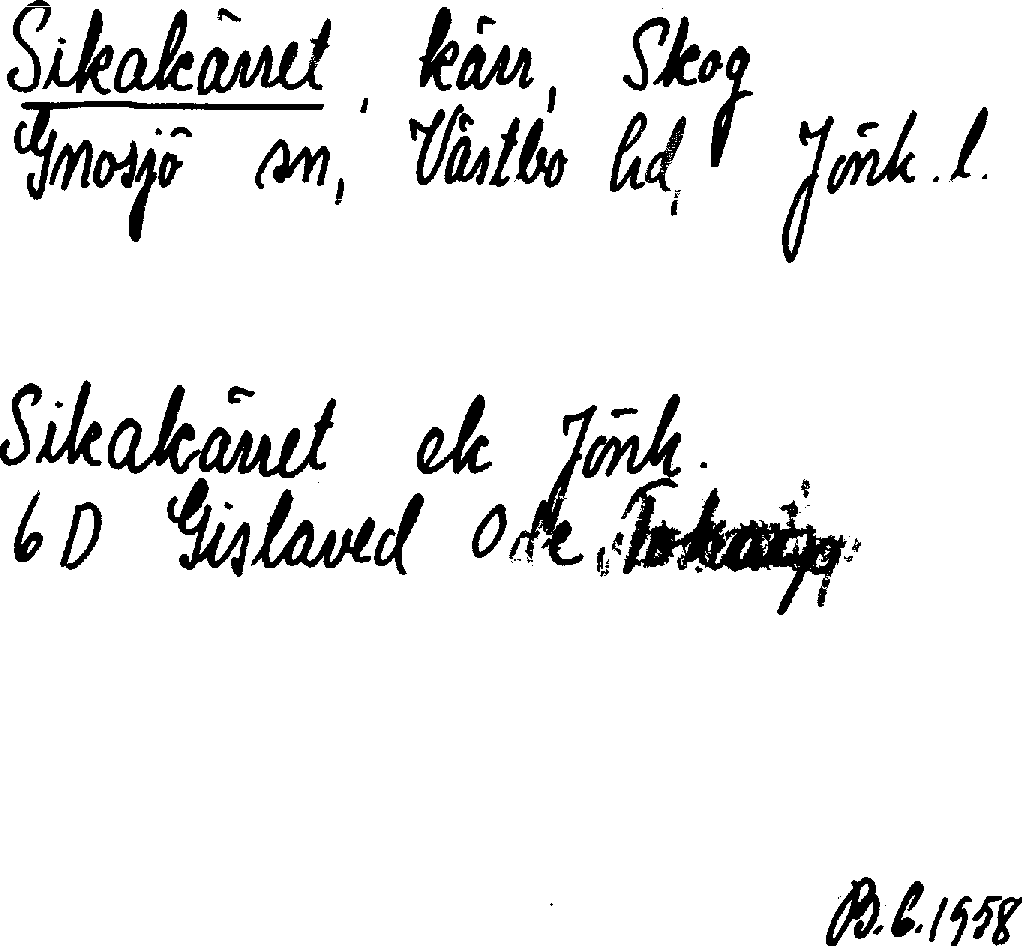 Sikakärret, kärr, Skog
Gnosjö sn, Västbo hd, Jönk. l.
Sikakärret ek Jönk.
6 D Gislaved 0 de
B. G. 1958